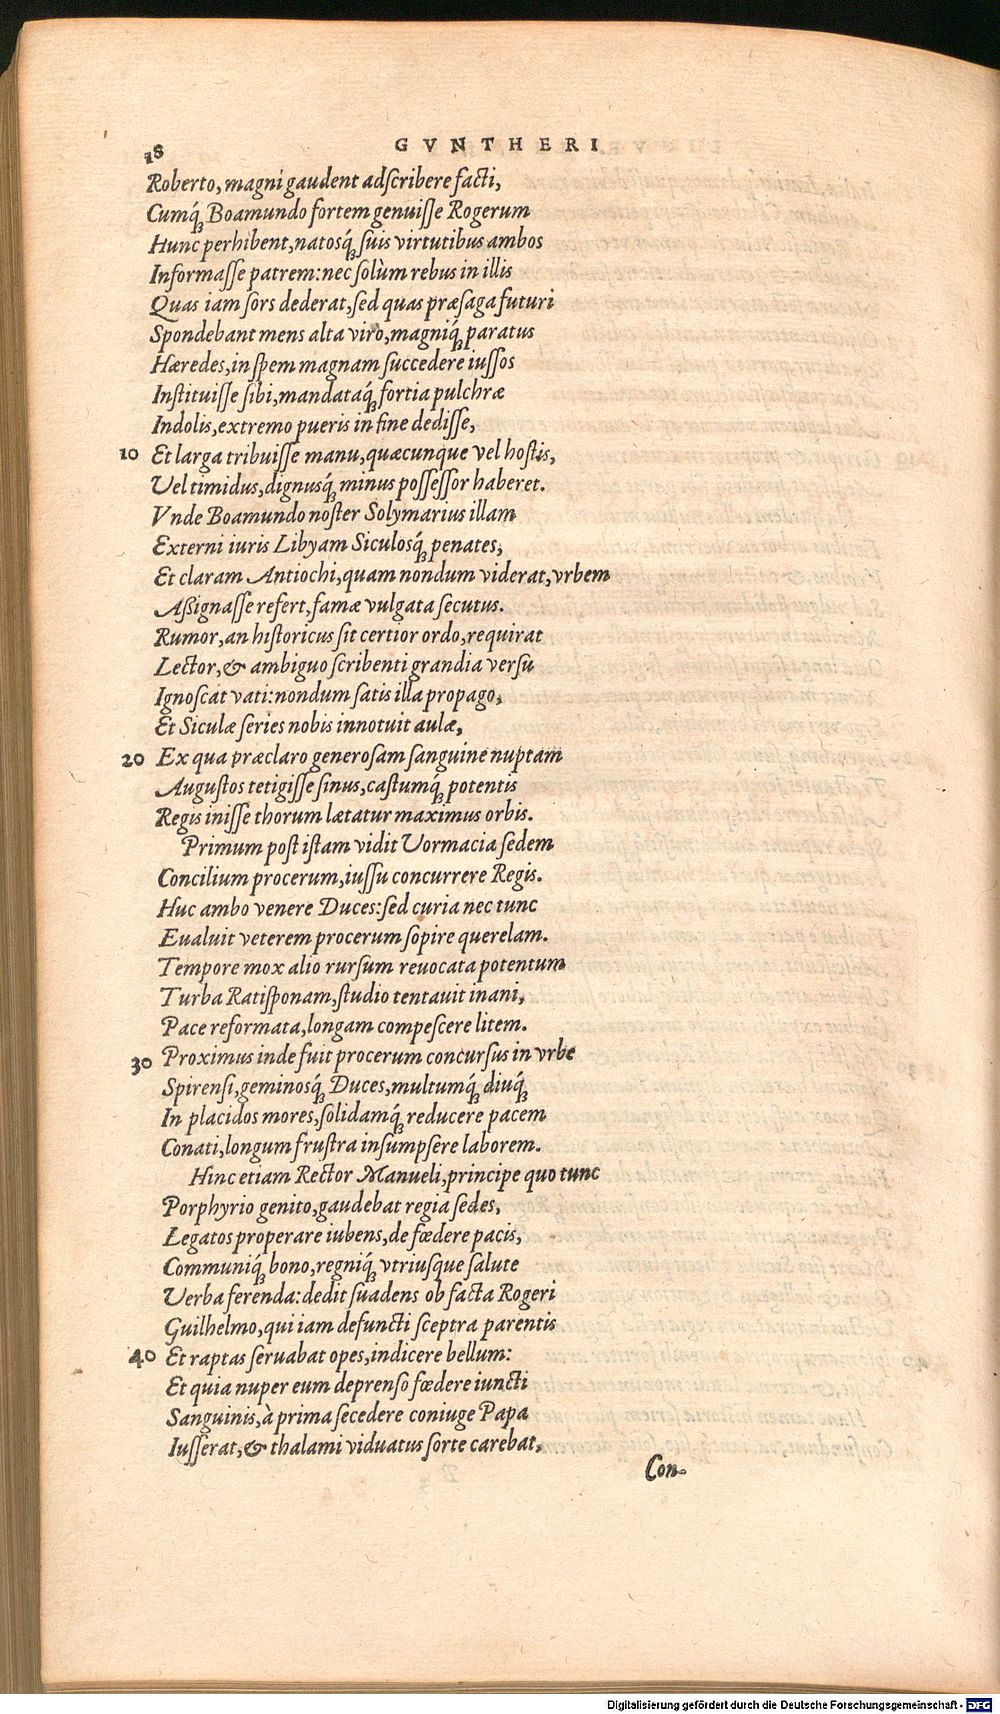 18 GVNTHERI
Roberto, magni gaudent adscribere facti,
Cumq́ꝫ Boamundo fortem genuisse Rogerum
Hunc perhibent, natosq́ꝫ suis virtutibus ambos
Informasse patrem: nec solùm rebus in illis
Quas iam sors dederat, sed quas præsaga futuri
Spondebant mens alta viro, magniq́ꝫ paratus
Hæredes, in spem magnam succedere iussos
Instituisse sibi, mandataq́ꝫ fortia pulchræ
Indolis, extremo pueris in fine dedisse,
10 Et larga tribuisse manu, quæcunque vel hostis,
Vel timidus, dignusq́ꝫ minus possessor haberet.
Vnde Boamundo noster Solymarius illam
Externi iuris Libyam Siculosq́ꝫ penates,
Et claram Antiochi, quam nondum viderat, vrbem
Aßignasse refert, famæ vulgata secutus.
Rumor, an historicus sit certior ordo, requirat
Lector, & ambiguo scribenti grandia versu
Ignoscat vati: nondum satis illa propago,
Et Siculæ series nobis innotuit aulæ,
20 Ex qua præclaro generosam sanguine nuptam
Augustos tetigisse sinus, castumq́ꝫ potentis
Regis inisse thorum lætatur maximus orbis.
Primum post istam vidit Vormacia sedem
Concilium procerum, iussu concurrere Regis.
Huc ambo venere Duces: sed curia nec tunc
Eualuit veterem procerum sopire querelam.
Tempore mox alio rursum reuocata potentum
Turba Ratisponam, studio tentauit inani,
Pace reformata, longam compescere litem.
30 Proximus inde fuit procerum concursus in vrbe
Spirensi, geminosq́ꝫ Duces, multumq́ꝫ diuq́ꝫ
In placidos mores, solidamq́ꝫ reducere pacem
Conati, longum frustra insumpsere laborem.
Hinc etiam Rector Manueli, principe quo tunc
Porphyrio genito, gaudebat regia sedes,
Legatos properare iubens, de fœdere pacis,
Communiq́ꝫ bono, regniq́ꝫ vtriusque salute
Verba ferenda: dedit suadens ob facta Rogeri
Guilhelmo, qui iam defuncti sceptra parentis
40 Et raptas seruabat opes, indicere bellum:
Et quia nuper eum deprenso fœdere iuncti
Sanguinis, à prima secedere coniuge Papa
Iusserat, & thalami viduatus sorte carebat,
Con-
Digitalisierung gefördert durch die Deutsche Forschungsgemeinschaft - DFG